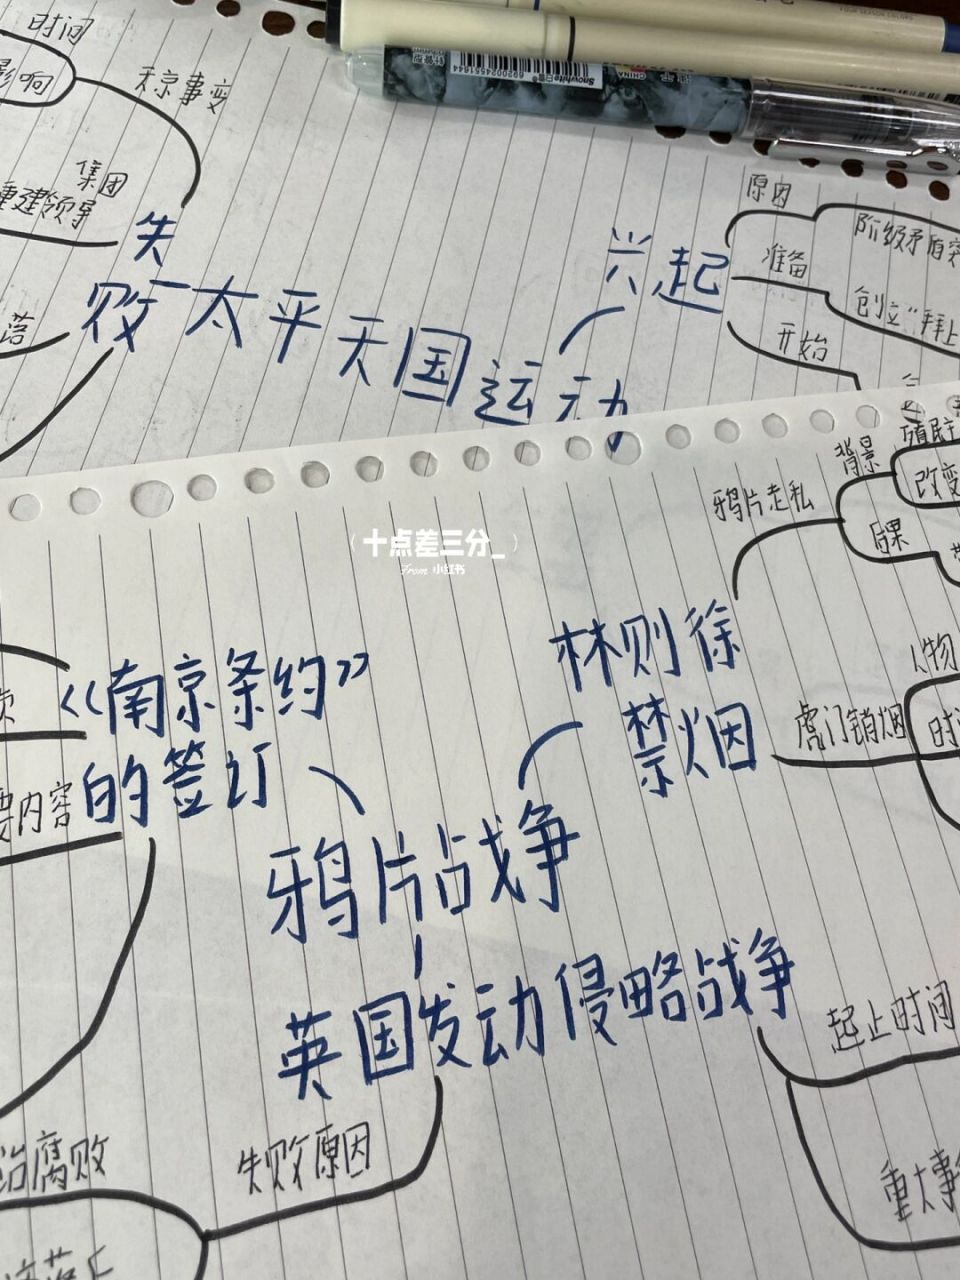 时间
影响
天京事变
集团
重建领导
失
败
落
太平天国运动
兴起
原因
阶级矛盾
准备
创立“拜上
开始
Snowhite
6920024551644
CHINA
十点差三分_
From 小红书
鸦片走私
背景
殖民
改变
后果
林则徐
禁烟
虎门销烟
人物
时
《南京条约》
的签订
要内容
鸦片战争
英国发动侵略战争
起止时间
重大事
失败原因
治腐败